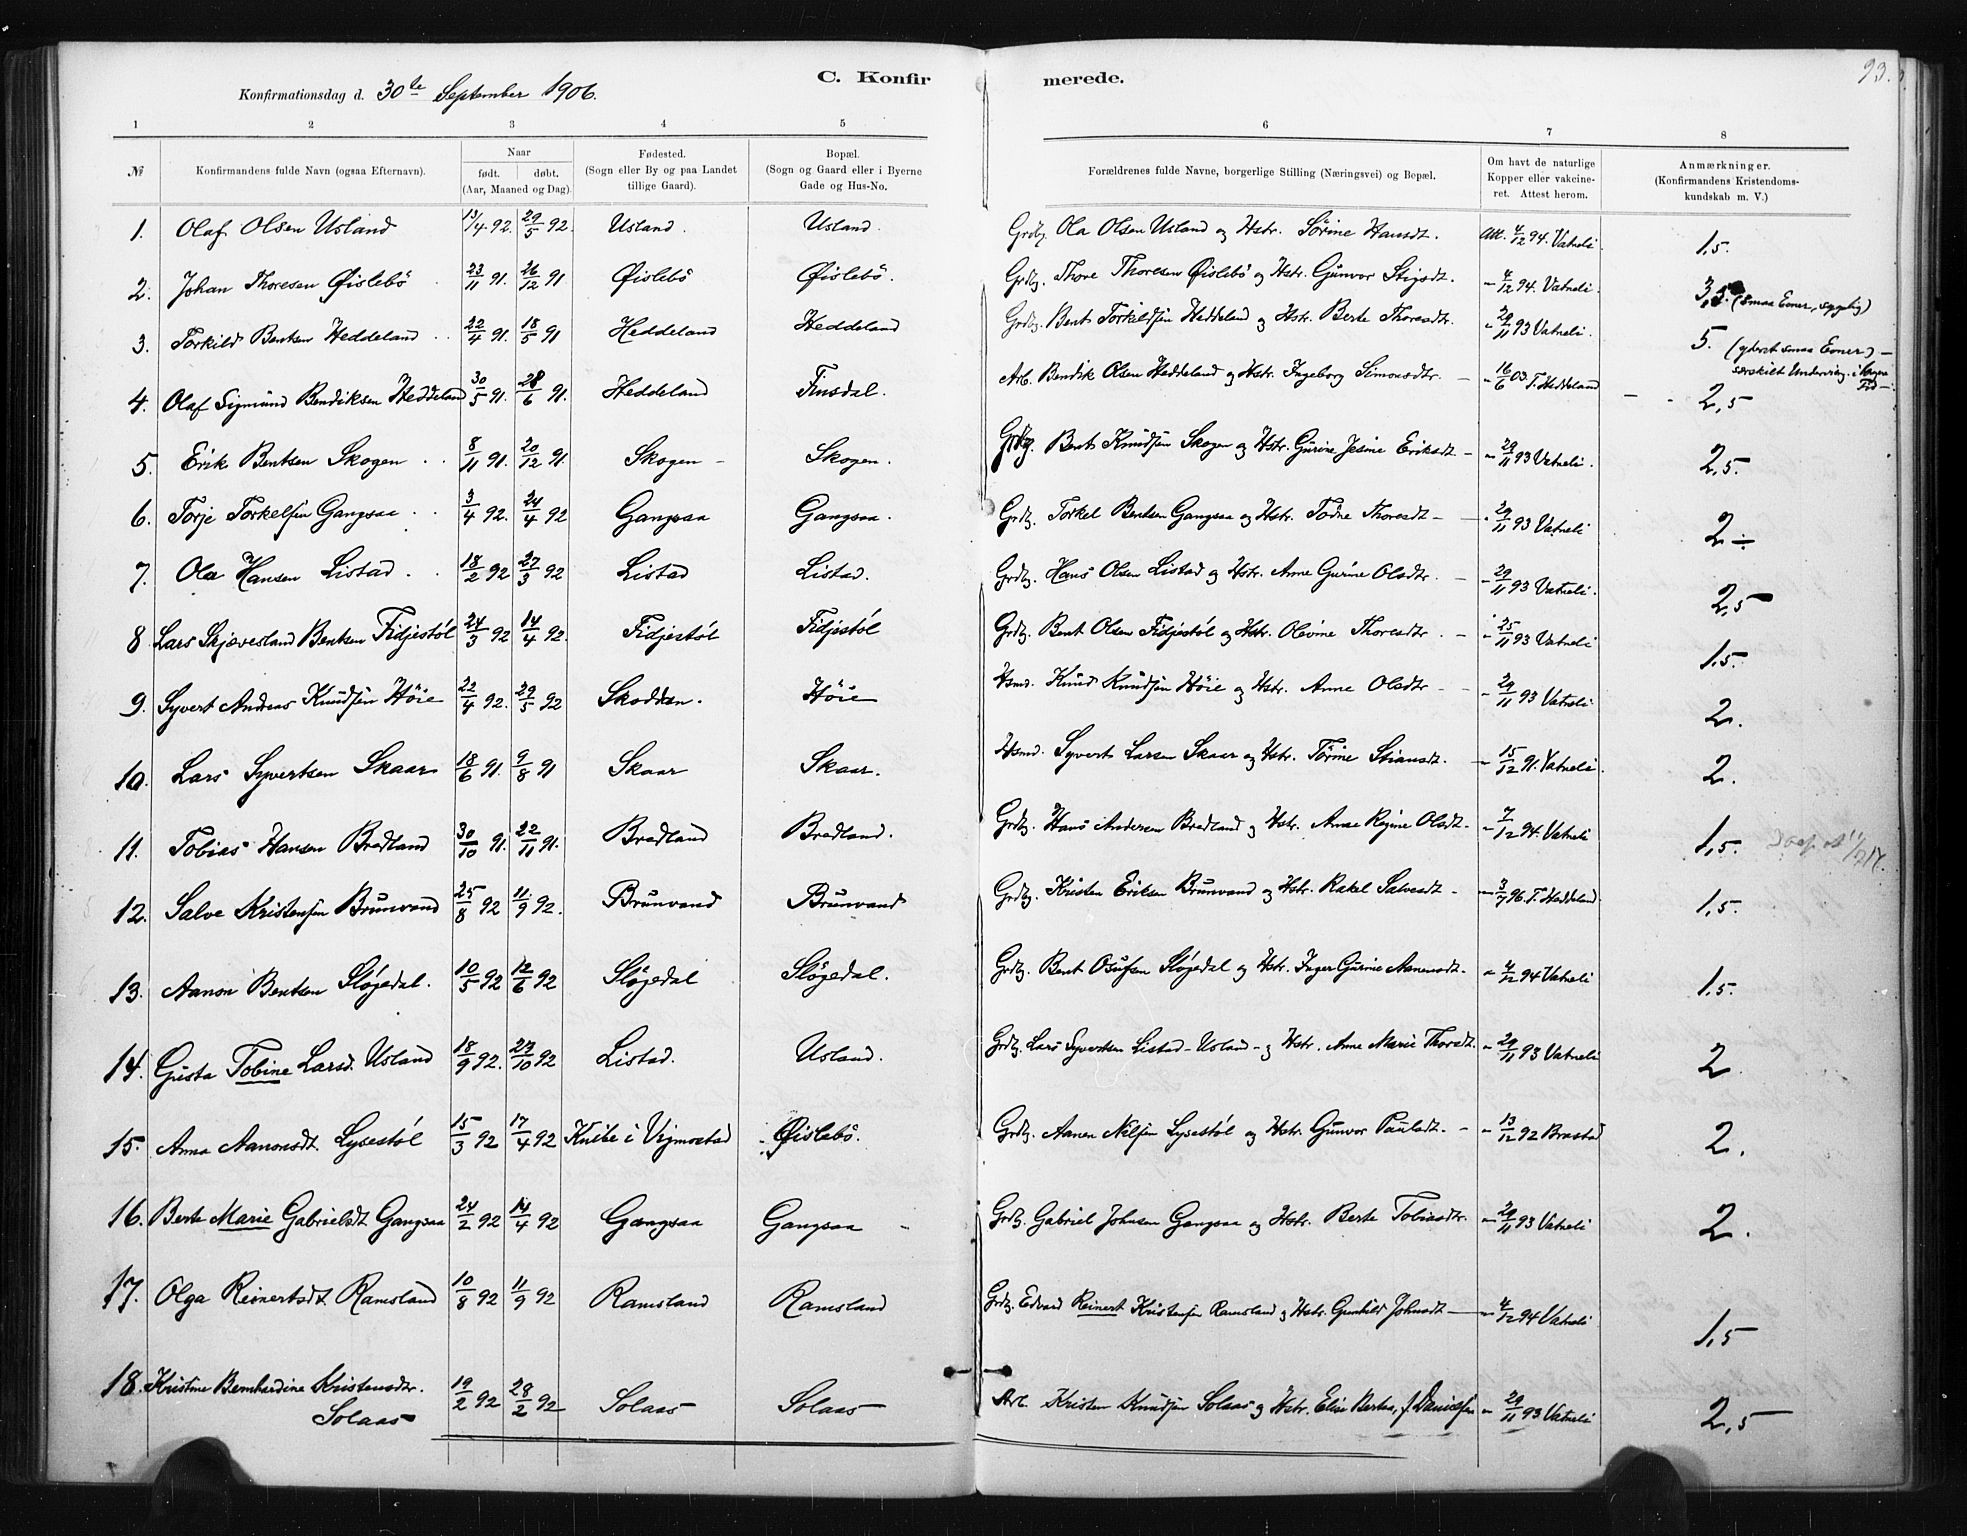 93.
C. Konfirmerede.
Konfirmationsdag d. 30te September 1906.
1 2 3 4 5 6 7 8
№ Konfirmandens fulde Navn (ogsaa Efternavn). Naar født. døbt. (Aar, Maaned og Dag). Fødested. (Sogn eller By og paa Landet tillige Gaard). Bopæl. (Sogn og Gaard eller i Byerne Gade og Hus-No. Forældrenes fulde Navne, borgerlige Stilling (Næringsvei) og Bopæl. Om havt de naturlige Kopper eller vakcineret. Attest herom. Anmærkninger. (Konfirmandens Kristendomskundskab m. V.)
1. Olaf Olsen Usland 13/4 92. 29/5 92. Usland. Usland. Grdbg. Ola Olsen Usland og Hstr. Sørine Hansdt. Att. 4/12 94. Vatneli 1,5.
2. Johan Thoresen Øislebö 23/11 91. 26/12 91 Øislebö Øislebö. Grdbg. Thore Thoresen Øislebö og Hstr. Gunvor Stigsdt. – 4/12 94. Vatneli. 3,5. (smaa Evner, sygelig)
3. Torkild Bentsen Heddeland 22/4 91. 18/5 91 Heddeland Heddeland Grdbg. Bent Torkildsen Heddeland og Hstr. Berte Thoresdtr. – 29/11 93 Vatneli. 5. (yderst smaa Evner) – særskilt Underviisn. i længre Tid –
4. Olaf Sigmund Bendiksen Heddeland 30/5 91. 28/6 91. Heddeland Finsdal. Arb. Bendik Olsen Heddeland og Hstr. Ingeborg Simonsdtr. – 16/6 03 T. Heddeland 2,5
5. Erik Bentsen Skogen 8/11 91. 20/12 91. Skogen – Skogen. Grdbg. Bent Knudsen Skogen og Hstr. Gurine Jesine Eriksdt – 29/11 93 Vatneli. 2,5.
6. Torje Torkelsen Gangsaa 3/4 92. 24/4 92 Gangsaa Gangsaa. Grdbg. Torkel Bentsen Gangsaa og Hstr. Todne Thoresdt – 29/11 93 Vatneli 2 ÷
7. Ola Hansen Listad 18/2 92 27/3 92 Listad Listad. Grdbg. Hans Olsen Listad og Hstr. Anne Gurine Olsdtr. – 29/11 93 Vatneli. 2,5
8 Lars Skjævesland Bentsen Fidjestöl 24/3 92 14/4 92. Fidjestöl Fidjestöl Grdbg. Bent Olsen Fidjestöl og Hstr. Olevine Thoresdtr. – 25/11 93 Vatneli 1,5.
9. Syvert Andreas Knudsen Höie 22/4 92. 29/5 92 Skoddan. Höie Hsmd. Knud Knudsen Höie og Hstr. Anne Olsdtr – 29/11 93 Vatneli 2.
10. Lars Syvertsen Skaar 18/6 91. 9/8 91 Skaar Skaar. Hsmd. Syvert Larsen Skaar og Hstr. Törine Stiansdt. – 15/12 91. Vatneli. 2.
11. Tobias Hansen Bredland 30/10 91. 22/11 91. Bredland Bredland. Grdbg. Hans Andersen Bredland og Hstr. Anne Regine Olsdt. – 7/12 94. Vatneli 1,5.
12. Salve Kristensen Brunvand 25/8 92 11/9 92. Brunvand Brunvand Grdbg. Kristen Eriksen Brunvand og Hstr. Rakel Salvesdt – 3/7 96. T. Heddeland. 1,5.
13. Aanon Bentsen Slögedal. 10/5 92 12/6 92 Slögedal Slögedal. Grdbg. Bent Osufsen Slögedal og Hstr. Inger Gurine Aanensdt. – 4/12 94 Vatneli 1,5.
14. Gusta Tobine Larsd. Usland 18/9 92. 23/10 92 Listad. Usland. Grdbg. Lars Syvertsen Listad – Usland – og Hstr. Anne Marie Thorsdt. – 29/11 93 Vatneli 2
15. Anna Aanonsdt. Lysestöl 15/3 92 17/4 92 Knibe i Vigmostad Øislebö. Grdbg. Aanen Nilsen Lysestöl og Hstr. Gunvor Paulsdt. – 13/12 92 Brastad 2.
16. Berte Marie Gabrielsdt Gangsaa 24/2 92 14/4 92 Gangsaa Gangsaa Grdbg. Gabriel Johnsen Gangsaa og Hstr. Berte Tobiasdtr. – 29/11 93 Vatneli 2.
17. Olga Reinertsdt. Ramsland 10/8 92 11/9 92 Ramsland Ramsland Grdbg. Edvard Reinert Kristensen Ramsland og Hstr. Gunhild Johnsdt – 4/12 94 Vatneli 1,5
18. Kristine Bernhardine Kristensdtr. Solaas 19/2 92 28/2 92 Solaas Solaas Arb. Kristen Knudsen Solaas og Hstr. Elise Bertea, f. Danielsen – 29/11 93 Vatneli 2,5